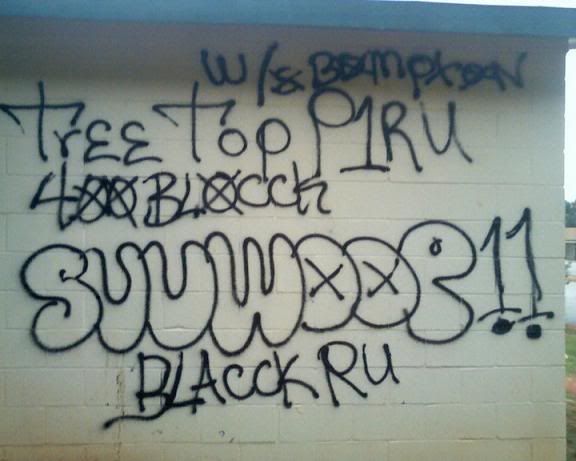 W/S BOMPTON
TrEE Top P1RU
400 BLOCCK
SUUWOOP!!
BLACCK RU